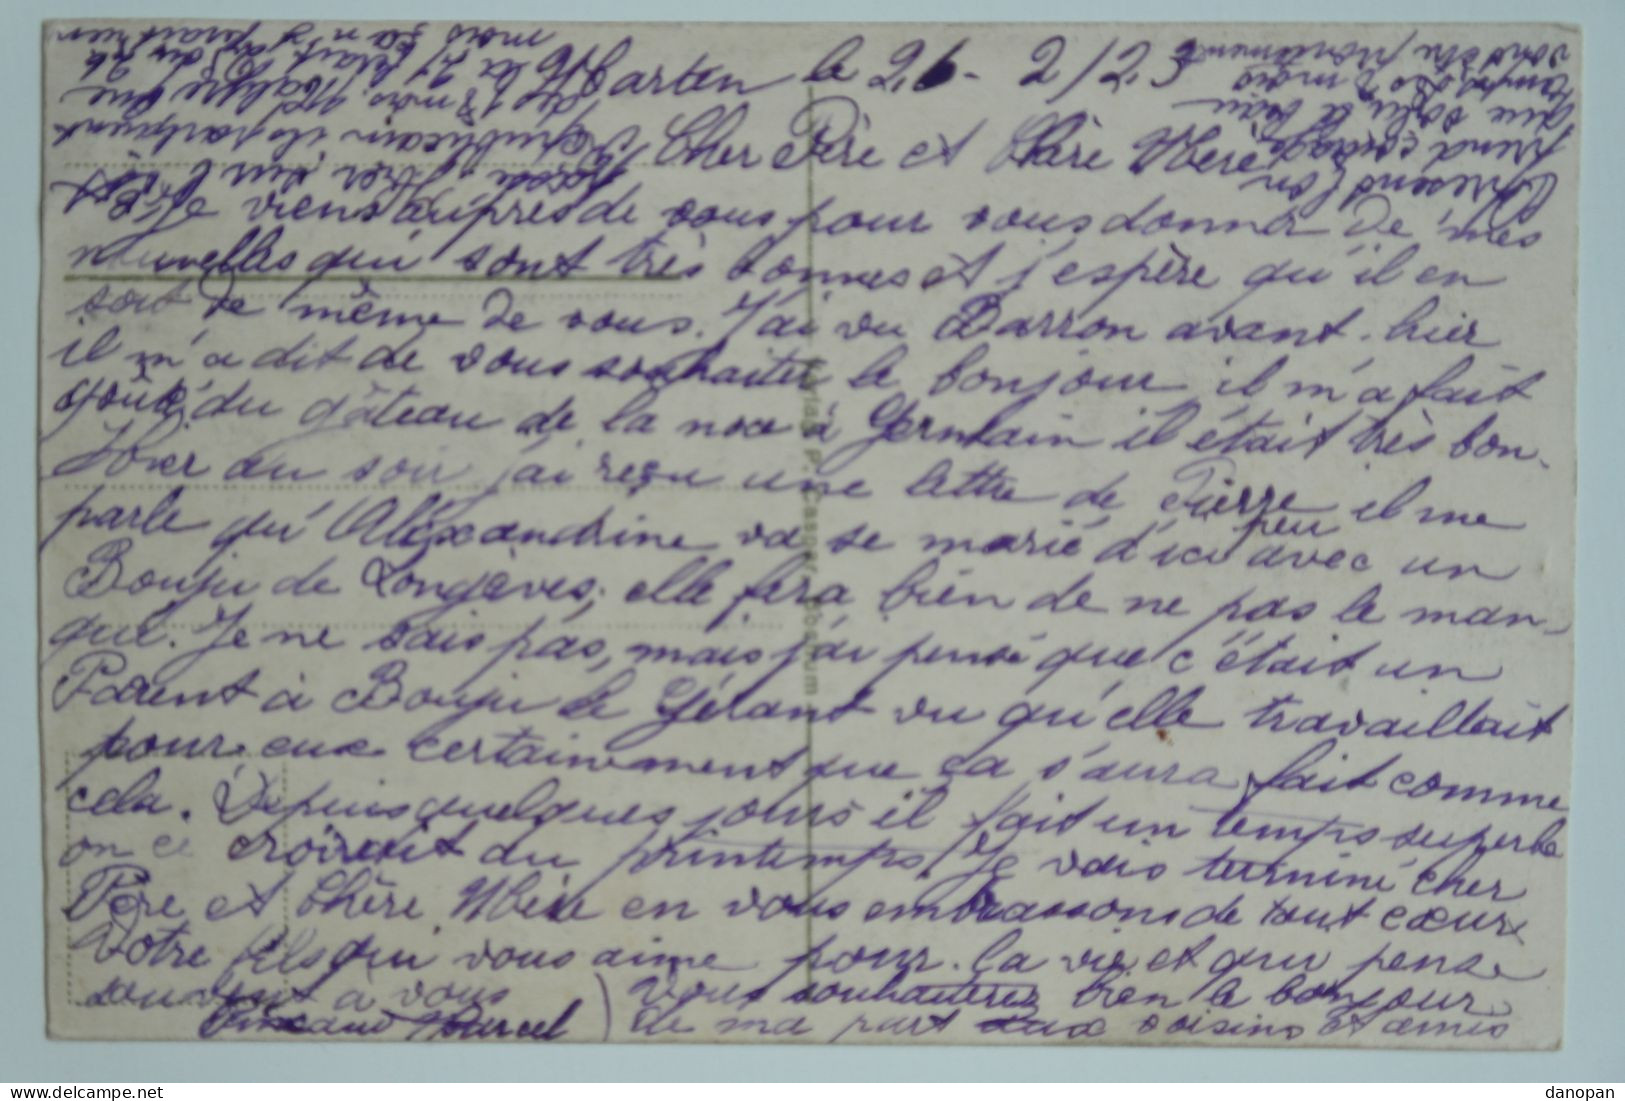 St Marten le 26 - 2/25
Cher Père et Chère Mère
Je viens auprès de vous pour vous donner de mes
nouvelles qui sont très bonnes et j'espère qu'il en
soit de même de vous. J'ai vu Barron avant-hier
il m'a dit de vous souhaiter le bonjour il m'a fait
goûté du gâteau de la noce à Germain il était très bon.
Hier au soir j'ai reçu une lettre de Pierre il me
parle qu'Aléxandrine va se marié d'ici peu avec un
Bouju de Longèves, elle fera bien de ne pas le man-
qué. Je ne sais pas, mais j'ai pensé que c'était un
Parent à Bouju le Gérant vu qu'elle travaillait
pour eux certainement que ça s'aura fait comme
cela. Depuis quelques jours il fait un temps superbe
on ce croirait du printemps. Je vais terminé cher
Père et Chère Mère en vous embrassons de tout cœur
Votre fils qui vous aime pour la vie et qui pense
souvent à vous
Marcel
Vous souhaiterez bien le bonjour
de ma part aux voisins et amis
A présent l'on
prend
que
mois
hier sur l'Est
Républicain ils parlaient
de 18 mois. Malgré que
la
mois sans y
P. Casper